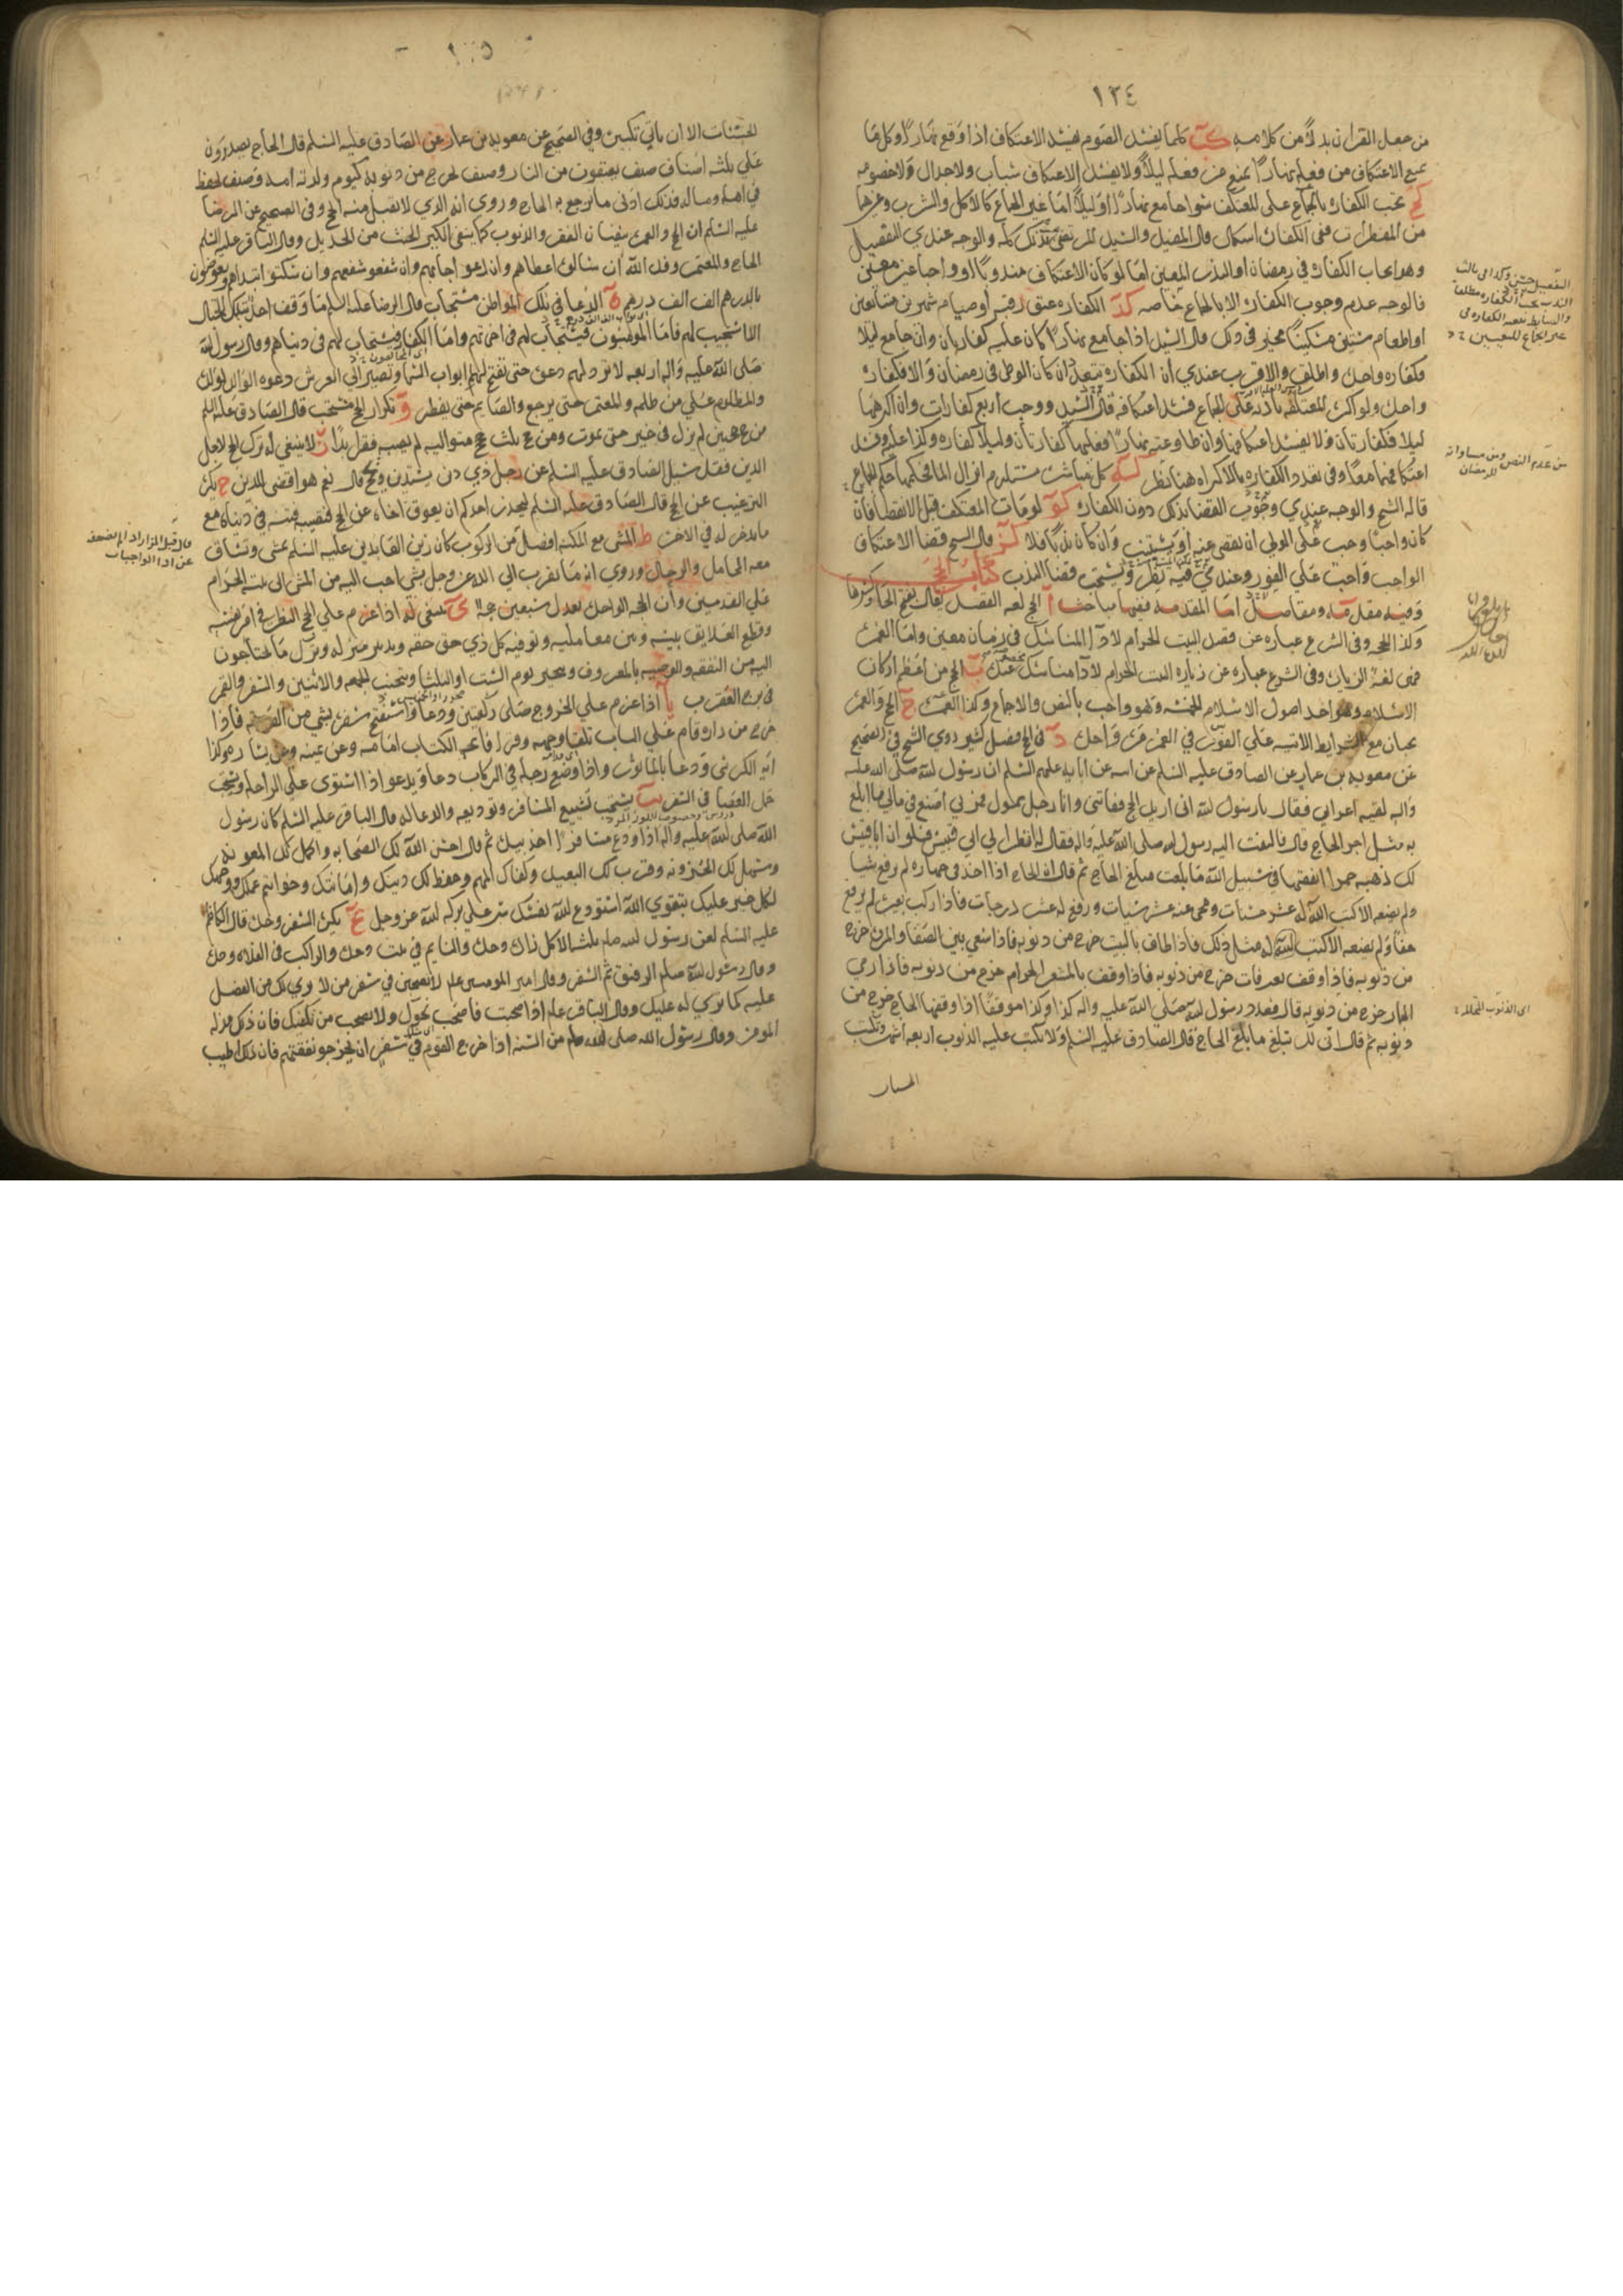 ١٣٤
من جعل القران بدلاً من كلامه كب كلما يفسد الصوم يفسد الاعتكاف اذا وقع نهارًا وكل ما
يمنع الاعتكاف من فعله نهارًا يمنع من فعله ليلاً ولا يفسد الاعتكاف سباب ولا جدال ولا خصومه
كج تجب الكفاره بالجماع على المعتكف سوا جامع نهارًا او ليلاً اما غير الجماع كالاكل والشرب وغيرهما
من المفطرات ففى الكفارة اشكال قال المفيد والسيد المرتضى بذلك كله والوجه عندي التفصيل
وهو ايجاب الكفارة في رمضان او النذر المعين اما لو كان الاعتكاف مندوبًا او واجبا غير معين
فالوجه عدم وجوب الكفارة الا بالجماع خاصه كد الكفاره عتق رقبه او صيام شهرين متتابعين
او اطعام ستين مسكينًا مخير في ذلك قال السيد اذا جامع نهارًا كان عليه كفارتان وان جامع ليلا
فكفاره واحدة واطلق والاقرب عندي ان الكفاره تتعدد ان كان الوطى في رمضان والا فكفارة
واحدة ولو اكره المعتكفه بالجماع فسد اعتكافه قال السيد ووجب اربع كفارات وان اكرهها
ليلا فكفارتان ولا يفسد اعتكافها وان طاوعته نهارًا فعليهما كفارتان وليلا كفاره وكذا عليه وفسد
اعتكافهما معًا وفى تعدد الكفاره بالاكراه هنا نظر كه كل مباشرة تستلزم انزال الما فحكمها حكم الجماع
قاله الشيخ والوجه عندي وجوب القضا بذلك دون الكفارة كو لو مات المعتكف قبل الانقضا فان
كان واجبًا وجب على الولي ان يقضى عنه او يستنيب وان كان ندبًا فلا كز قال الشيخ قضا الاعتكاف
الواجب واجب على الفور وعندي فيه نظر ويستحب قضا الندب كتاب الحج
وفيه مقدمه ومقاصد اما المقدمه ففيها مباحث آ الحج لغه القصد يقال بفتح الحا وكسرها
وكذا الحجه وفى الشرع عباره عن قصد البيت الحرام لادآ المناسك في زمان معين واما العمرة
فهى لغة الزياره وفى الشرع عباره عن زياره البيت الحرام لادآ مناسك عنده ب الحج من اعظم اركان
الاسلام وهو احد اصول الاسلام الخمسه وهو واجب بالنص والاجماع وكذا العمرة ج الحج والعمرة
يجبان مع الشرايط الاتيه على الفور في العمر مرة واحدة د في الحج فضل كثير روي الشيخ في الصحيح
عن معويه بن عمار عن الصادق عليه السلم عن ابيه عن ابايه عليهم السلم ان رسول الله صلى الله عليه
واله لقيه اعرابي فقال يا رسول الله انى اريد الحج ففاتنى وانا رجل مميل فمرني اصنع في مالي ما ابلغ
به مثل اجر الحاج قال فالتفت اليه رسول الله صلى الله عليه واله فقال له انظر الي ابي قبيس فلو ان ابا قبيس
لك ذهبه حمرا انفقتها في سبيل الله ما بلغت مبلغ الحاج ثم قال ان الحاج اذا اخذ في جهازه لم يرفع شيا
ولم يضعه الا كتب الله له عشر حسنات ومحى عنه عشر سيئات ورفع له عشر درجات فاذا ركب بعيره لم يرفع
خفا ولم يضعه الا كتب الله له مثل ذلك فاذا طاف بالبيت خرج من ذنوبه فاذا سعى بين الصفا والمروة خرج
من ذنوبه فاذا وقف بعرفات خرج من ذنوبه فاذا وقف بالمشعر الحرام خرج من ذنوبه فاذا رمي
الجمار خرج من ذنوبه قال فعدد رسول الله صلى الله عليه واله كذا وكذا موقفًا اذا وقفها الحاج خرج من
ذنوبه ثم قال انى لك تبلغ ما بلغ الحاج قال الصادق عليه السلم ولا تكتب عليه الذنوب اربعه اشهر وتكتب
من عدم النص ومن مساواته لرمضان
الحسنات الا ان ياتي بكبيرة وفي الصحيح عن معويه بن عمار عن الصادق عليه السلم قال الحاج يصدرون
على ثلثه اصناف صنف يعتقون من النار وصنف يخرج من ذنوبه كيوم ولدته امه وصنف يحفظ
في اهله وماله فذلك ادنى ما يرجع به الحاج وروي انه الذي لا يقبل منه الحج وفى الصحيح عن الرضا
عليه السلم ان الحج والعمرة ينفيان الفقر والذنوب كما ينفى الكير الخبث من الحديد وقال الباقر عليه السلم
الحاج والمعتمر وفد الله ان سالوه اعطاهم وان دعوه اجابهم وان شفعوا شفعهم وان سكتوا ابتداهم ويعوضون
بالدرهم الف الف درهم ه الدعا في تلك المواطن مستجاب قال الرضا عليه السلم ما وقف احد بتلك الجبال
الا استجيب له فاما المومنون فيستجاب لهم في اخرتهم واما الكفار فيستجاب لهم في دنياهم وقال رسول الله
صلى الله عليه واله اربعه لا ترد لهم دعوة حتى تفتح لهم ابواب السما وتصير الى العرش دعوه الوالد لولده
والمظلوم على من ظلمه والمعتمر حتى يرجع والصايم حتى يفطر و تكرار الحج مستحب قال الصادق عليه السلم
من حج حجتين لم يزل في خير حتى يموت ومن حج ثلث حجج متواليه لم يصبه فقر ابدًا ز لا ينبغي له ترك الحج لاجل
الدين فقد سيل الصادق عليه السلم عن رجل ذي دين يستدين ويحج قال نعم هو اقضى للدين ح يكره
الترغيب عن الحج قال الصادق عليه السلم ليحذر احدكم ان يعوق اخاه عن الحج فتصيبه فتنه في دنياه مع
ما يدخر له في الاخرة ط المشى مع المكنه افضل من الركوب كان زين العابدين عليه السلم يمشى وتساق
معه المحامل والرحال وروي انه ما تقرب الي الله عز وجل بشى احب اليه من المشى الى بيته الحرام
على القدمين وان الحجه الواحدة تعدل سبعين حجه ى ينبغى له اذا عزم علي الحج النظر في امر نفسه
وقطع العلايق بينه وبين معامليه وتوفيه كل ذي حق حقه وتدبير منزله وترك ما يحتاجون
اليه من النفقه والوصيه بالمعروف ويتخير يوم السبت او الثلثا ويتجنب الجمعه والاثنين والسفر والقمر
في برج العقرب يا اذا عزم علي الخروج صلى ركعتين ودعا واستفتح سفره بشي من الصدقه فاذا
خرج من داره قام على الباب تلقا وجهه وقرا فاتحه الكتاب امامه وعن يمينه وعن يساره وكذا
آيه الكرسى ودعا بالماثور واذا وضع رجله في الركاب دعا ويدعو اذا استوى على الراحله ويستحب
حمل العصا في السفر يب يستحب تشييع المسافر وتوديعه والدعا له قال الباقر عليه السلم كان رسول
الله صلى الله عليه واله اذا ودع مسافرًا اخذ بيده ثم قال احسن الله لك الصحابه واكمل لك المعونه
وسهل لك الحزونه وقرب لك البعيد وكفاك المهم وحفظ لك دينك وامانتك وخواتيم عملك ووجهك
لكل خير عليك بتقوي الله استودع الله نفسك سر علي بركه الله عز وجل يج يكره السفر وحده قال الكاظم
عليه السلم لعن رسول الله صلعم ثلثه الاكل زاده وحده والنايم في بيت وحده والراكب في الفلاه وحده
وقال رسول الله صلعم الرفيق ثم السفر وقال امير المومنين علم لا تصحبن في سفر من لا يري لك من الفضل
عليه كما تري له عليك وقال الباقر علم اذا صحبت فاصحب نحوك ولا تصحب من يكفيك فان ذلك مذله
المومن وقال رسول الله صلى الله علم من السنه اذا خرج القوم في سفر ان يخرجوا نفقتهم فان ذلك اطيب